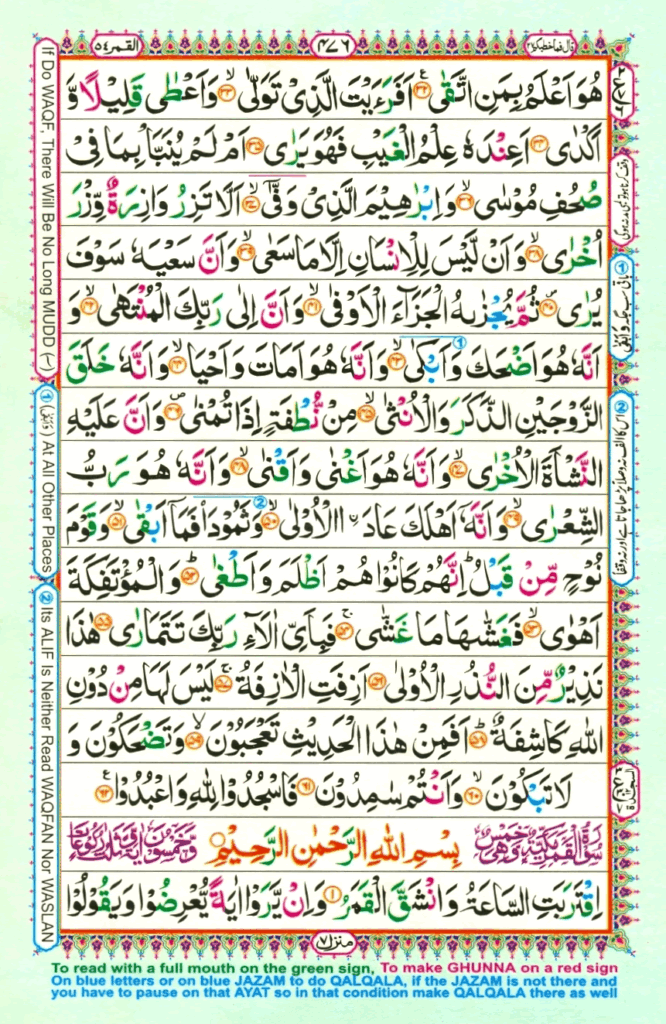 القمر ٥٤
٤٧٦
قال فما خطبكم ٢٧
هُوَ اَعْلَمُ بِمَنِ اتَّقٰى ۝٣٢ اَفَرَءَيْتَ الَّذِىْ تَوَلّٰى ۝٣٣ وَاَعْطٰى قَلِيْلًا وَّ
اَكْدٰى ۝٣٤ اَعِنْدَهٗ عِلْمُ الْغَيْبِ فَهُوَ يَرٰى ۝٣٥ اَمْ لَمْ يُنَبَّاْ بِمَا فِىْ
صُحُفِ مُوْسٰى ۝٣٦ وَاِبْرٰهِيْمَ الَّذِىْ وَفّٰىٓ ۝٣٧ اَلَّا تَزِرُ وَازِرَةٌ وِّزْرَ
اُخْرٰى ۝٣٨ وَاَنْ لَّيْسَ لِلْاِنْسَانِ اِلَّا مَا سَعٰى ۝٣٩ وَاَنَّ سَعْيَهٗ سَوْفَ
يُرٰى ۝٤٠ ثُمَّ يُجْزٰىهُ الْجَزَآءَ الْاَوْفٰى ۝٤١ وَاَنَّ اِلٰى رَبِّكَ الْمُنْتَهٰى ۝٤٢ وَ
اَنَّهٗ هُوَ اَضْحَكَ وَاَبْكٰى ① ۝٤٣ وَاَنَّهٗ هُوَ اَمَاتَ وَاَحْيَا ۝٤٤ وَاَنَّهٗ خَلَقَ
الزَّوْجَيْنِ الذَّكَرَ وَالْاُنْثٰى ۝٤٥ مِنْ نُّطْفَةٍ اِذَا تُمْنٰى ۝٤٦ وَاَنَّ عَلَيْهِ
النَّشْاَةَ الْاُخْرٰى ۝٤٧ وَاَنَّهٗ هُوَ اَغْنٰى وَاَقْنٰى ۝٤٨ وَاَنَّهٗ هُوَ رَبُّ
الشِّعْرٰى ۝٤٩ وَاَنَّهٗٓ اَهْلَكَ عَادَاۨ الْاُوْلٰى ۝٥٠ وَثَمُوْدَا۟ ② فَمَآ اَبْقٰى ۝٥١ وَقَوْمَ
نُوْحٍ مِّنْ قَبْلُ ؕ اِنَّهُمْ كَانُوْا هُمْ اَظْلَمَ وَاَطْغٰى ۝٥٢ وَالْمُؤْتَفِكَةَ
اَهْوٰى ۝٥٣ فَغَشّٰىهَا مَا غَشّٰى ۝٥٤ فَبِاَىِّ اٰلَآءِ رَبِّكَ تَتَمَارٰى ۝٥٥ هٰذَا
نَذِيْرٌ مِّنَ النُّذُرِ الْاُوْلٰى ۝٥٦ اَزِفَتِ الْاٰزِفَةُ ۝٥٧ لَيْسَ لَهَا مِنْ دُوْنِ
اللّٰهِ كَاشِفَةٌ ۝٥٨ اَفَمِنْ هٰذَا الْحَدِيْثِ تَعْجَبُوْنَ ۝٥٩ وَتَضْحَكُوْنَ وَ
لَا تَبْكُوْنَ ۝٦٠ وَاَنْتُمْ سٰمِدُوْنَ ۝٦١ فَاسْجُدُوْا لِلّٰهِ وَاعْبُدُوْا ۝٦٢
بِسْمِ اللّٰهِ الرَّحْمٰنِ الرَّحِيْمِ
اِقْتَرَبَتِ السَّاعَةُ وَانْشَقَّ الْقَمَرُ ۝١ وَاِنْ يَّرَوْا اٰيَةً يُّعْرِضُوْا وَيَقُوْلُوْا
منزل ٧
If Do WAQF, There Will Be No Long MUDD (~)
① (وَاَبْقٰى) At All Other Places
② Its ALIF Is Neither Read WAQFAN Nor WASLAN
وقف کرنا ہو تو بڑی مد نہ ہوگی
① باقی سب جگہ وَاَبْقٰى
② اس کا الف نہ وصلاً پڑھا جاتا ہے اور نہ وقفاً
To read with a full mouth on the green sign, To make GHUNNA on a red sign
On blue letters or on blue JAZAM to do QALQALA, if the JAZAM is not there and
you have to pause on that AYAT so in that condition make QALQALA there as well